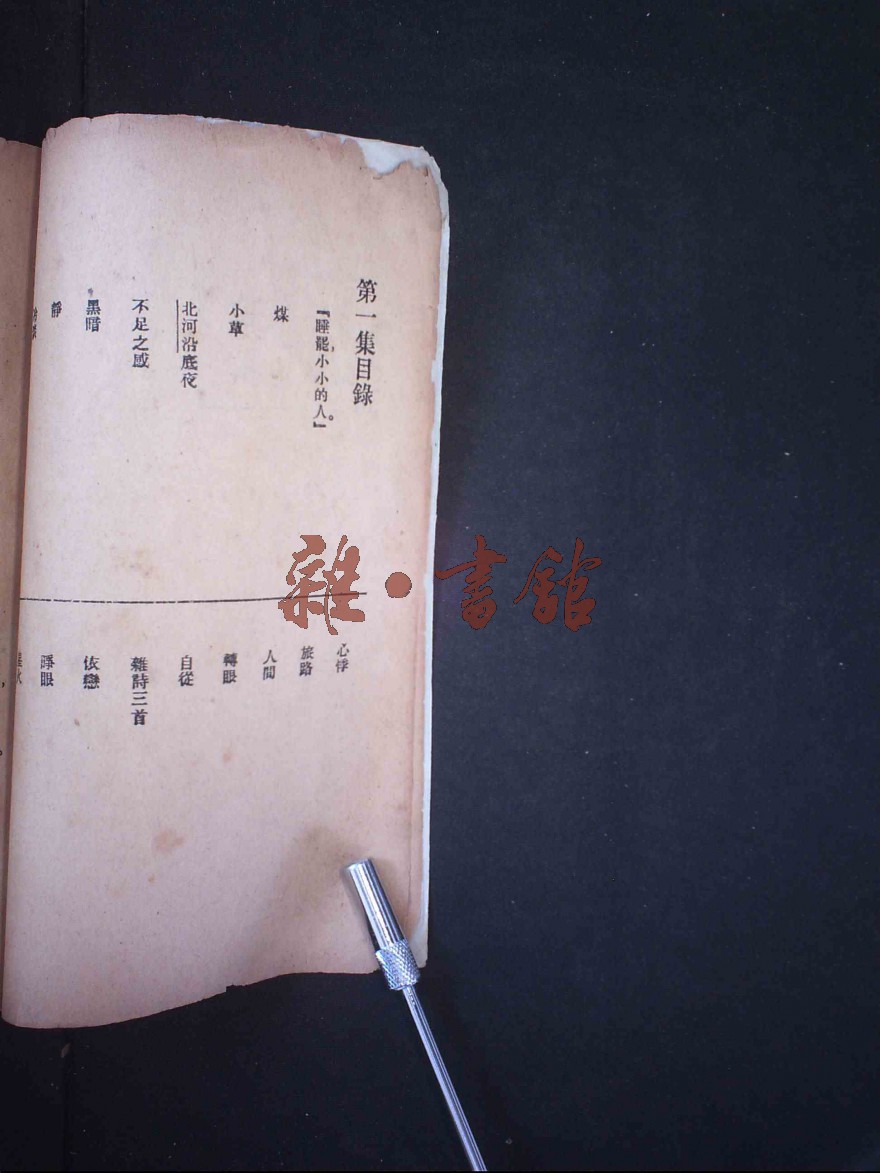 第一集目錄
『睡罷，小小的人。』
煤
小草
北河沿底夜
不足之感
黑暗
靜
心悸
旅路
人間
轉眼
自從
雜詩三首
依戀
睜眼
雜•書館